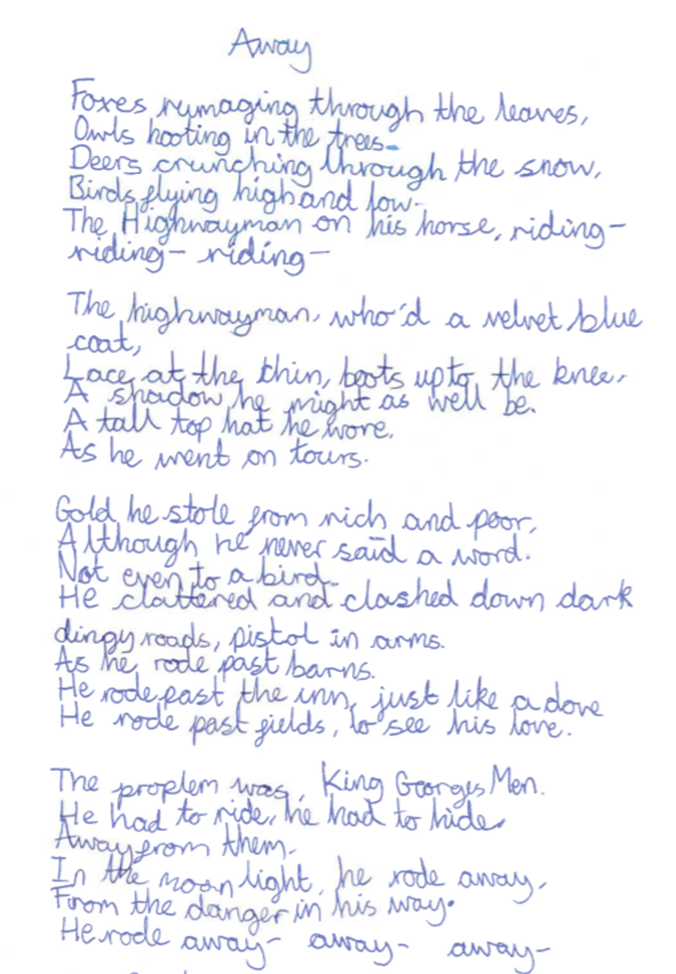 Away
Foxes rumaging through the leaves,
Owls hooting in the trees-
Deers crunching through the snow,
Birds flying high and low-
The Highwayman on his horse, riding-
riding- riding-
The highwayman, who'd a velvet blue
coat,
Lace at the chin, boots up to the knee,
A shadow he might as well be.
A tall top hat he wore.
As he went on tours.
Gold he stole from rich and poor,
Although he never said a word.
Not even to a bird-
He clattered and clashed down dark
dingy roads, pistol in arms.
As he rode past barns.
He rode past the inn, just like a dove
He rode past fields, to see his love.
The proplem was, King Georges Men.
He had to ride, he had to hide,
Away from them.
In the moonlight, he rode away,
From the danger in his way.
He rode away- away- away-